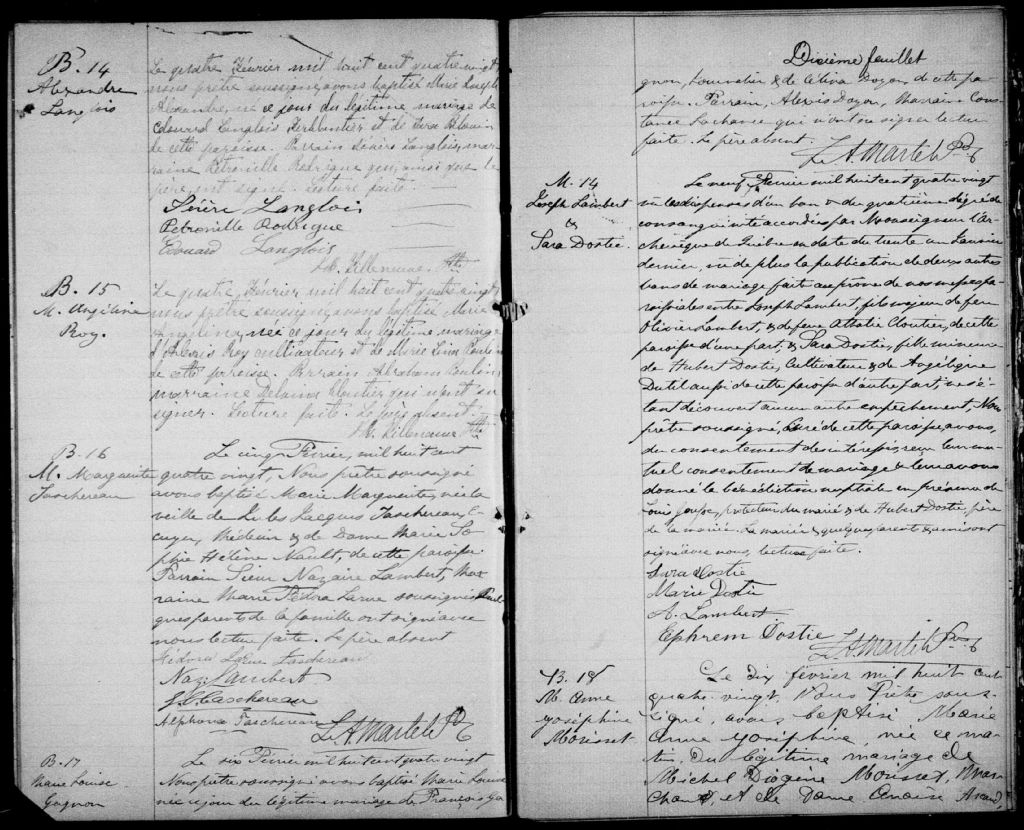 B. 14
Alexandre
Langlois
Le quatre Février mil huit cent quatre vingt
nous prêtre soussigné avons baptisé Marie Joseph
Alexandre, né ce jour du légitime mariage de
Edouard Langlois Ferblantier et de
de cette paroisse. Parrain Sévère Langlois, mar-
raine Pétronille Rodrigue qui, ainsi que le
père, ont signé. Lecture faite.
Sévère Langlois
Petronille Rodrigue
Edouard Langlois
Villeneuve Ptre
B. 15
M. Angélina
Roy.
Le quatre Février mil huit cent quatre vingt
nous prêtre soussigné avons baptisé Marie
Angélina, née ce jour du légitime mariage
d'Alexis Roy cultivateur et de Marie Poulin
de cette paroisse. Parrain Abraham Poulin,
marraine Délaina Cloutier qui n'ont su
signer. Lecture faite. Le père absent.
Villeneuve Ptre
B. 16
M. Marguerite
Taschereau
Le cinq Février, mil huit cent
quatre vingt, Nous prêtre soussigné
avons baptisé Marie Marguerite, née la
veille de Jules Jacques Taschereau, E-
cuyer, Médecin & de Dame Marie So-
phie Hélène Nault, de cette paroisse.
Parrain Sieur Nazaire Lambert, Mar-
raine Marie Fédora Larue soussignés. Quel-
ques parents de la famille ont signé avec
nous lecture faite. Le père absent
Fédora Larue Taschereau
Naz. Lambert
Taschereau
Alphonse Taschereau
L. A. Martel Ptre
B. 17
Marie Louise
Gagnon
Le six Février mil huit cent quatre vingt
Nous prêtre soussigné avons baptisé Marie Louise
née ce jour du légitime mariage de François Ga-
Dixième feuillet
gnon, Journalier & de Célina Doyon de cette pa-
roisse. Parrain, Alexis Doyon, Marraine Cons-
tance Lachance qui n'ont su signer lecture
faite. Le père absent.
L. A. Martel Ptre
M. 14
Joseph Lambert
&
Sara Dostie.
Le neuf Février mil huit cent quatre vingt
vu les dispenses d'un ban & du quatrième dégré de
consanguinité accordées par Monseigneur l'Ar-
chevêque de Québec en date du trente un Janvier
dernier, vu de plus la publication de deux autres
bans de mariage faite au prône de nos messes pa-
roissiales entre Joseph Lambert, fils majeur de feu
Olivier Lambert, & de feue Athalie Cloutier, de cette
paroisse d'une part; & Sara Dostie, fille mineure
de Hubert Dostie, Cultivateur & de Angélique
Dutil aussi de cette paroisse d'autre part; ne s'é-
tant découvert aucun autre empêchement, Nous
prêtre soussigné, Curé de cette paroisse, avons,
du consentement des intéressés, reçu leur mu-
tuel consentement de mariage & leur avons
donné la bénédiction nuptiale en présence de
Louis protecteur du marié & de Hubert Dostie, père
de la mariée. La mariée & quelques parents & amis ont
signé avec nous, lecture faite.
Sara Dostie
Marie Dostie
A. Lambert
Ephrem Dostie
L. A. Martel Ptre
B. 18
M. Anne
Joséphine
Morisset
Le dix février mil huit cent
quatre vingt, Nous Prêtre sous-
signé, avons baptisé Marie
Anne Joséphine, née ce ma-
tin, du légitime mariage de
Michel Diogène Morisset, Mar-
chand, et de Dame Anaïse